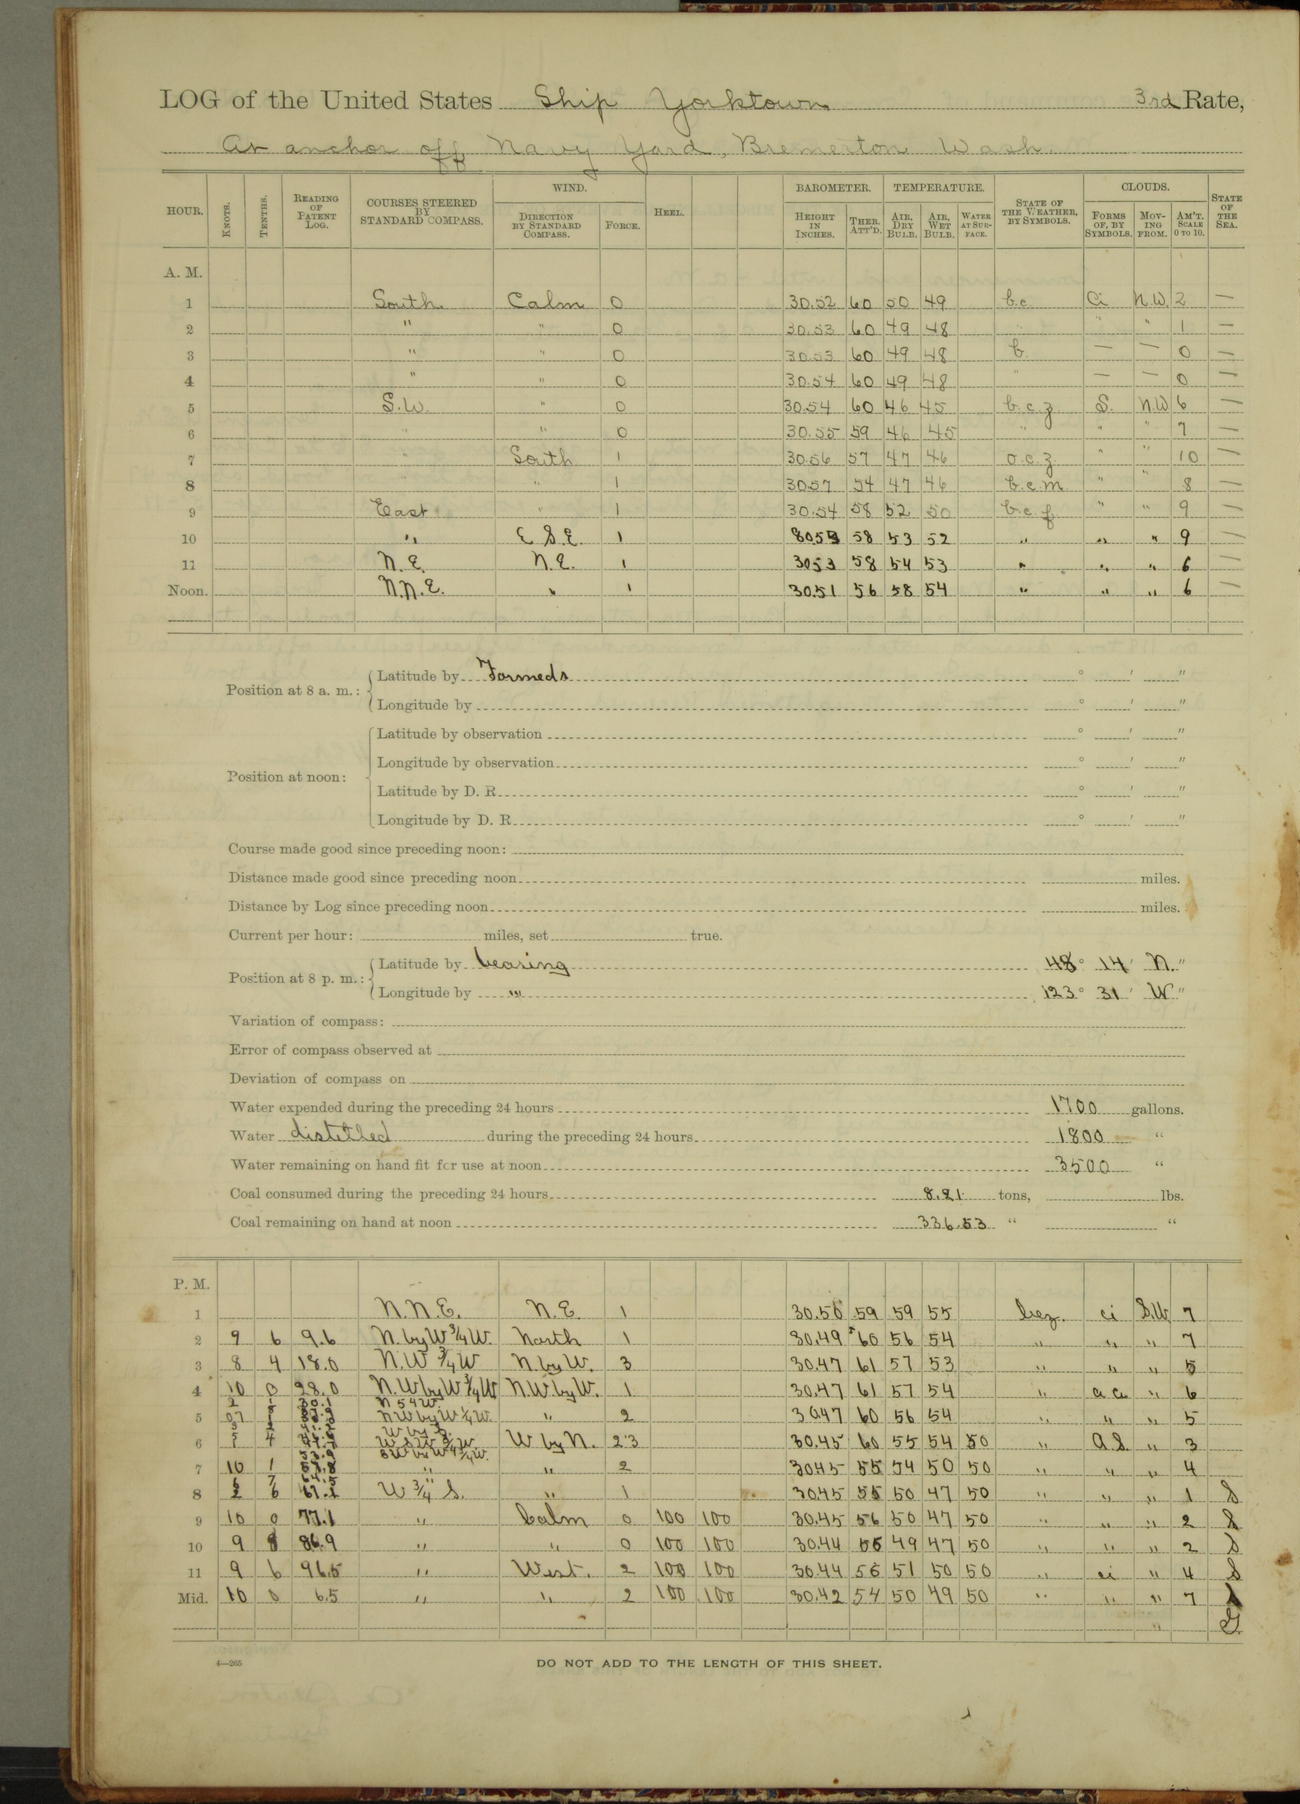 LOG of the United States Ship Yorktown 3rd Rate,
At anchor off Navy Yard, Bremerton Wash.
HOUR. KNOTS. TENTHS. READING OF PATENT LOG. COURSES STEERED BY STANDARD COMPASS. WIND. DIRECTION BY STANDARD COMPASS. FORCE. HEEL. BAROMETER. HEIGHT IN INCHES. THER. ATT'D. TEMPERATURE. AIR, DRY BULB. AIR, WET BULB. WATER AT SURFACE. STATE OF THE WEATHER, BY SYMBOLS. CLOUDS. FORMS OF, BY SYMBOLS. MOVING FROM. AM'T. SCALE 0 TO 10. STATE OF THE SEA.
A. M.
1 South Calm 0 30.52 60 50 49 b.c. Ci N.W. 2 —
2 " " 0 30.53 60 49 48 " " " 1 —
3 " " 0 30.53 60 49 48 b. — — 0 —
4 " " 0 30.54 60 49 48 " — — 0 —
5 S.W. " 0 30.54 60 46 45 b.c.z. S. N.W 6 —
6 " " 0 30.55 59 46 45 " " " 7 —
7 " South 1 30.56 57 47 46 o.c.z. " " 10 —
8 " " 1 30.57 54 47 46 b.c.m " " 8 —
9 East " 1 30.54 58 52 50 b.c.f " " 9 —
10 " E S.E. 1 58 53 52 " " " 9 —
11 N.E. N.E. 1 3053 58 54 53 " " " 6 —
Noon. N.N.E. " 1 30.51 56 58 54 " " " 6 —
Position at 8 a. m.: Latitude by ° ' "
Longitude by ° ' "
Position at noon: Latitude by observation ° ' "
Longitude by observation ° ' "
Latitude by D. R. ° ' "
Longitude by D. R. ° ' "
Course made good since preceding noon:
Distance made good since preceding noon miles.
Distance by Log since preceding noon miles.
Current per hour: miles, set true.
Position at 8 p. m.: Latitude by bearing 48° 14' N."
Longitude by " 123° 31' W"
Variation of compass:
Error of compass observed at
Deviation of compass on
Water expended during the preceding 24 hours 1700 gallons.
Water distilled during the preceding 24 hours 1800 "
Water remaining on hand fit for use at noon 3500 "
Coal consumed during the preceding 24 hours 8.21 tons, lbs.
Coal remaining on hand at noon 336.53 " "
P. M.
1 N.N.E. N.E. 1 30.50 59 59 55 bcz. ci S.W. 7
2 9 6 9.6 N. by W ¾ W. North 1 30.49 60 56 54 " " " 7
3 8 4 18.0 N.W ¾ W N. by W. 3 30.47 61 57 53 " " " 5
4 10 0 28.0 N.W by W ¾ W N.W by W. 1 30.47 61 57 54 " " 6
5 N 54 W. N W by W ¼ W. " 2 3047 60 56 54 " " " 5
6 4 W by N. 2-3 30.45 60 55 54 50 " " 3
7 10 1 " " 2 3045 55 54 50 50 " " " 4
8 2 6 W ¾ S. " 1 3045 55 50 47 50 " " " 1 S
9 10 0 77.1 " Calm 0 100 100 30.45 56 50 47 50 " " " 2 S
10 9 8 86.9 " " 0 100 100 30.44 49 47 50 " " " 2 S
11 9 6 96.5 " West. 2 100 100 30.44 56 51 50 50 " ci " 4 S
Mid. 10 0 6.5 " " 2 100 100 30.42 54 50 49 50 " " " 7
4—265
DO NOT ADD TO THE LENGTH OF THIS SHEET.